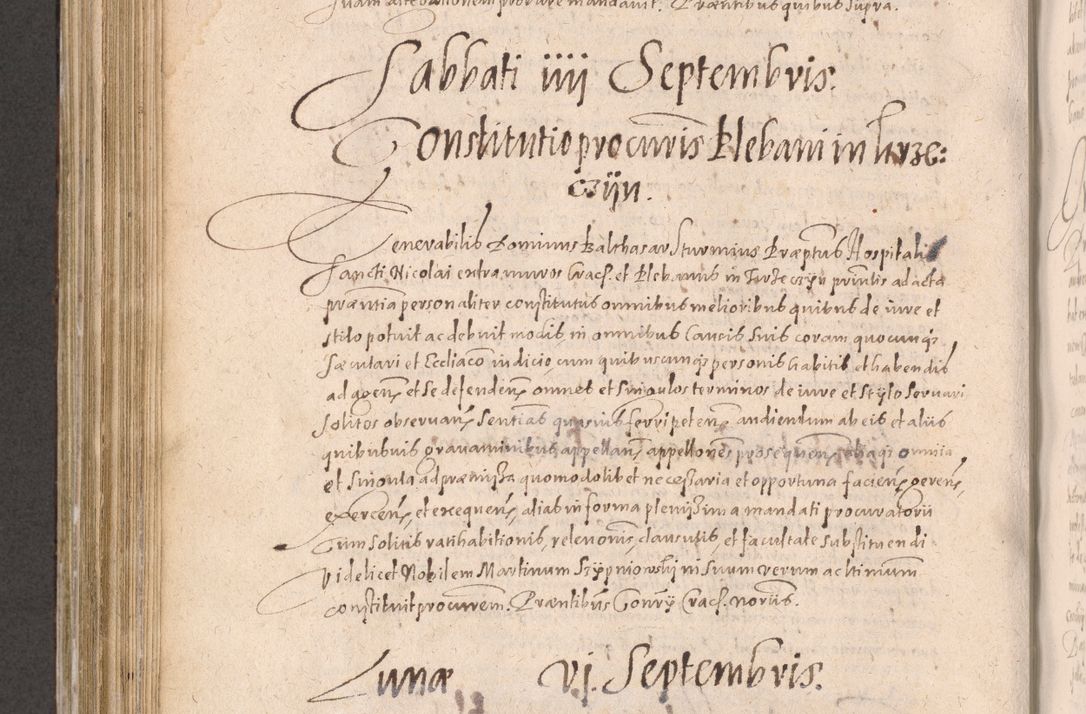 suam alteram in eum probare mandavit. Præntibus quibus supra.
Sabbati iiij Septembris.
Constitutio procuris Plebani in Turze:
czijn.
Venerabilis Dominus Balthasar Sturmius Præptus Hospitalis
Sancti Nicolai extra muros Crac. et Plebanus in Turzeczijn prińlis ad acta
præntia personaliter constitutus omnibus melioribus quibus de iure et
stilo potuit ac debuit modis in omnibus causis suis coram quocunqȝ
sæculari et Eccliaco iudicio, cum quibuscunqȝ personis habitis et habendis
ad agen. et se defenden. omnes et singulos terminos de iure et stylo servari
solitos observan. sentias quasvis ferri peten. audiendum ab eis et aliis
quibusvis gravaminibus appellan. appellones prosequen. aliaqȝ omnia
et singula ad præmissa quomodolibet necessaria et opportuna facien. geren.
exercen. et exequen. alias in forma plenissima mandati procuratorii
Cum solitis ratihabitionis, relevonis, clausulis, et facultate substituendi
videlicet Nobilem Martinum Szypniowskij in suum verum ac ltimum
constituit procurem. Præntibus Conry Crac. noriis.
Lunæ vj. Septembris.